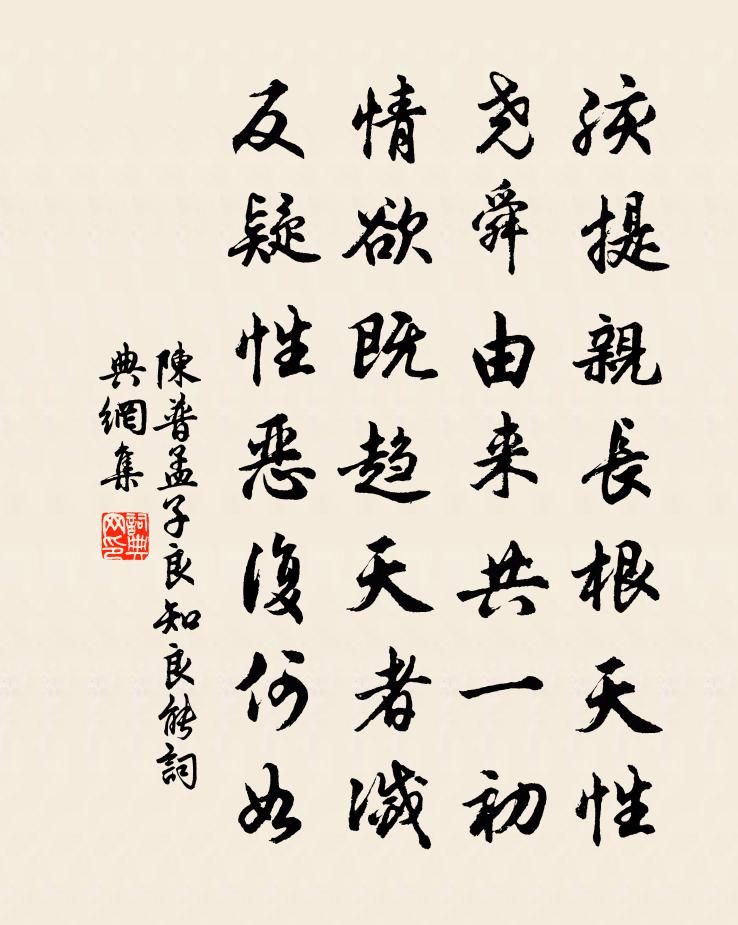 孩提親長根天性
堯舜由来共一初
情欲既趋天者滅
反疑性惡復何如
陳普孟子良知良能詞
典網集
詞典
网印